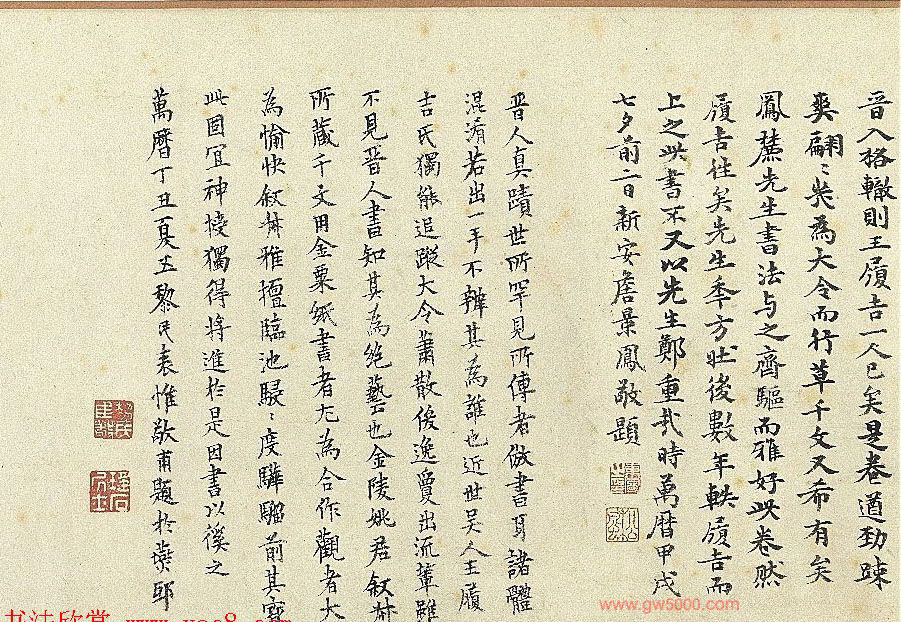 晋入格轍則王履吉一人已矣是卷遒勁踈
爽翩〻裝為大令而行草千文又希有矣
鳳麓先生書法与之齊驅而雅好此卷然
履吉往矣先生季方壯後數年軼履吉而
上之此書不又以先生鄭重哉時萬曆甲戌
七夕前二日新安詹景鳳敬題
晋人真蹟世所罕見所傳者倣書耳諸體
混淆若出一手不辨其為誰也近世吴人王履
吉氏獨能追蹤大令蕭散俊逸敻出流輩雖
不見晋人書知其為絶藝也金陵姚君叙
所蔵千文用金粟紙書者尤為合作觀者大
為愉快叙雅擅臨池駸〻度驊騮前其寳
此固宜神搜獨得将進於是因書以徯之
萬曆丁丑夏五黎民表惟敬甫題於
www.gw5000.com
书法欣赏